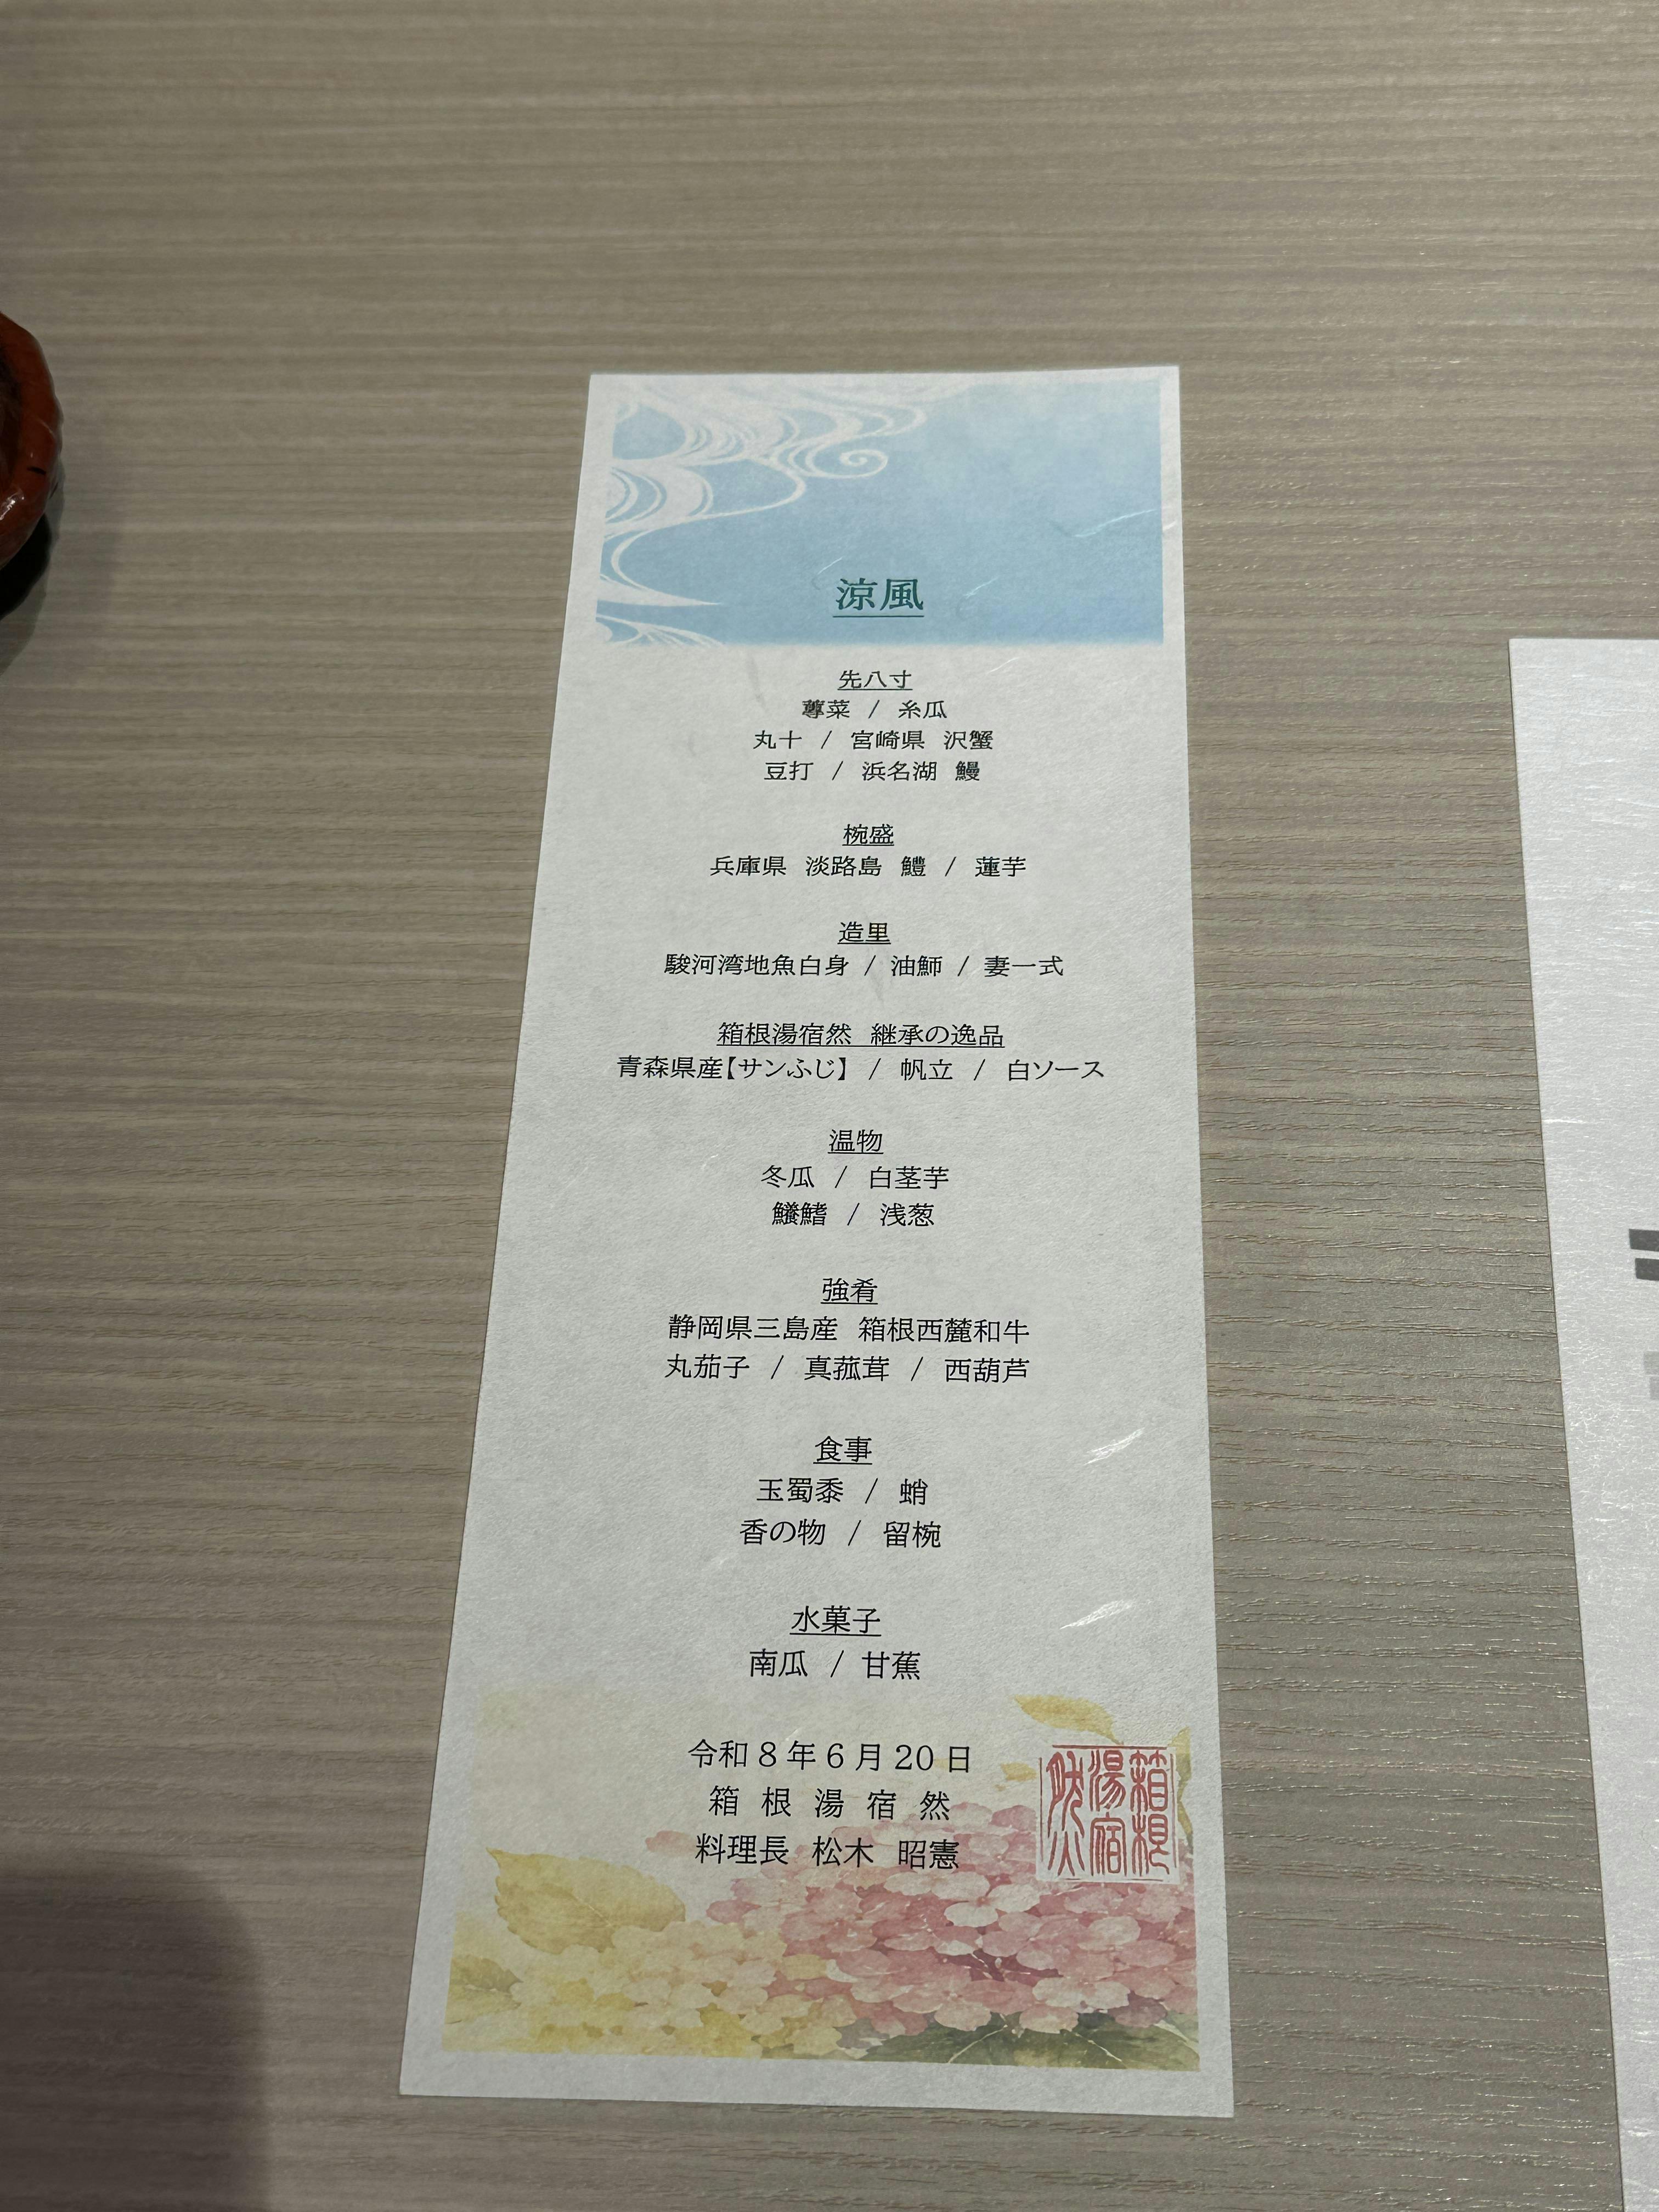 涼風
先八寸
蓴菜 / 糸瓜
丸十 / 宮崎県 沢蟹
豆打 / 浜名湖 鰻
椀盛
兵庫県 淡路島 鱧 / 蓮芋
造里
駿河湾地魚白身 / 油鰤 / 妻一式
箱根湯宿然 継承の逸品
青森県産【サンふじ】 / 帆立 / 白ソース
温物
冬瓜 / 白茎芋
鱶鰭 / 浅葱
強肴
静岡県三島産 箱根西麓和牛
丸茄子 / 真菰茸 / 西葫芦
食事
玉蜀黍 / 蛸
香の物 / 留椀
水菓子
南瓜 / 甘蕉
令和8年6月20日
箱根湯宿然
料理長 松木 昭憲
箱根
湯宿
然